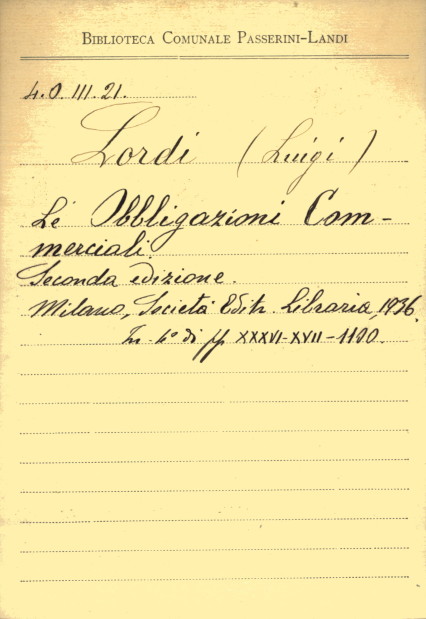 BIBLIOTECA COMUNALE PASSERINI-LANDI
4.O.III.21.
Lordi (Luigi)
Le Obbligazioni Com-
merciali.
Seconda edizione.
Milano, Società Editr. Libraria, 1936.
In 4º di pp XXXVI-XVII-1190.